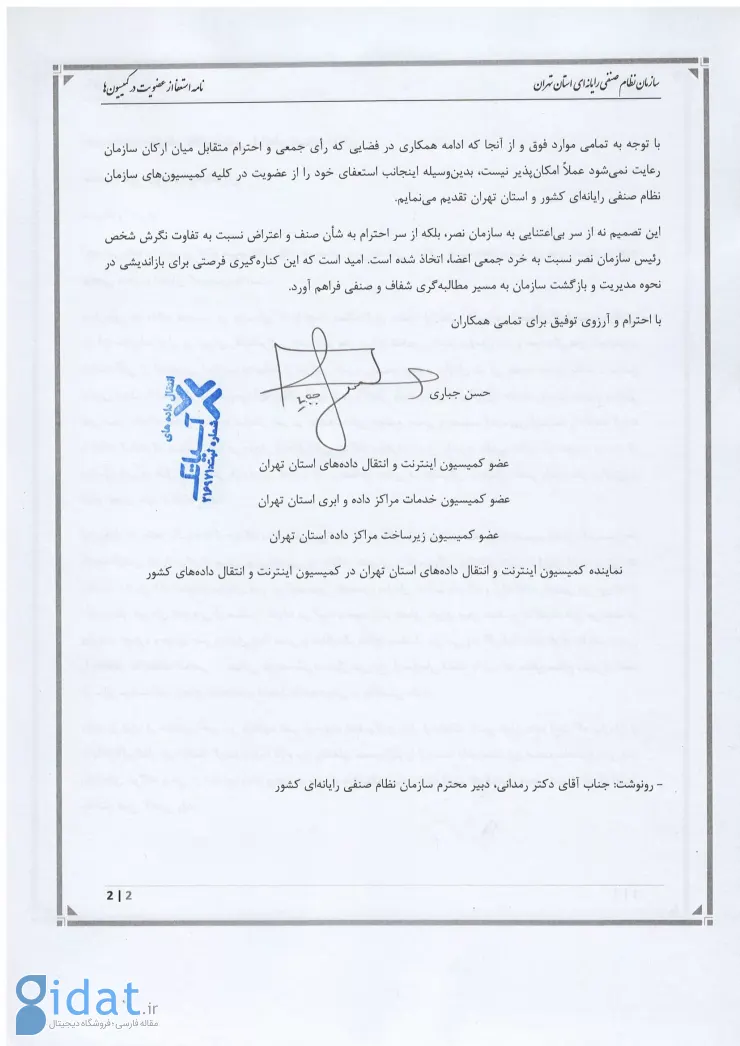 سازمان نظام صنفی رایانه‌ای استان تهران
نامه استعفا از عضویت در کمیسیون‌ها
با توجه به تمامی موارد فوق و از آنجا که ادامه همکاری در فضایی که رأی جمعی و احترام متقابل میان ارکان سازمان
رعایت نمی‌شود عملاً امکان‌پذیر نیست، بدین‌وسیله اینجانب استعفای خود را از عضویت در کلیه کمیسیون‌های سازمان
نظام صنفی رایانه‌ای کشور و استان تهران تقدیم می‌نمایم.
این تصمیم نه از سر بی‌اعتنایی به سازمان نصر، بلکه از سر احترام به شأن صنف و اعتراض نسبت به تفاوت نگرش شخص
رئیس سازمان نصر نسبت به خرد جمعی اعضا، اتخاذ شده است. امید است که این کناره‌گیری فرصتی برای بازاندیشی در
نحوه مدیریت و بازگشت سازمان به مسیر مطالبه‌گری شفاف و صنفی فراهم آورد.
با احترام و آرزوی توفیق برای تمامی همکاران
حسن جباری
انتقال داده های
آسیاتک
شماره ثبت: ۲۱۶۹۷۱
عضو کمیسیون اینترنت و انتقال داده‌های استان تهران
عضو کمیسیون خدمات مراکز داده و ابری استان تهران
عضو کمیسیون زیرساخت مراکز داده استان تهران
نماینده کمیسیون اینترنت و انتقال داده‌های استان تهران در کمیسیون اینترنت و انتقال داده‌های کشور
- رونوشت: جناب آقای دکتر رمدانی، دبیر محترم سازمان نظام صنفی رایانه‌ای کشور
2 | 2
gidat.ir
مقاله فارسی؛ فروشگاه دیجیتال